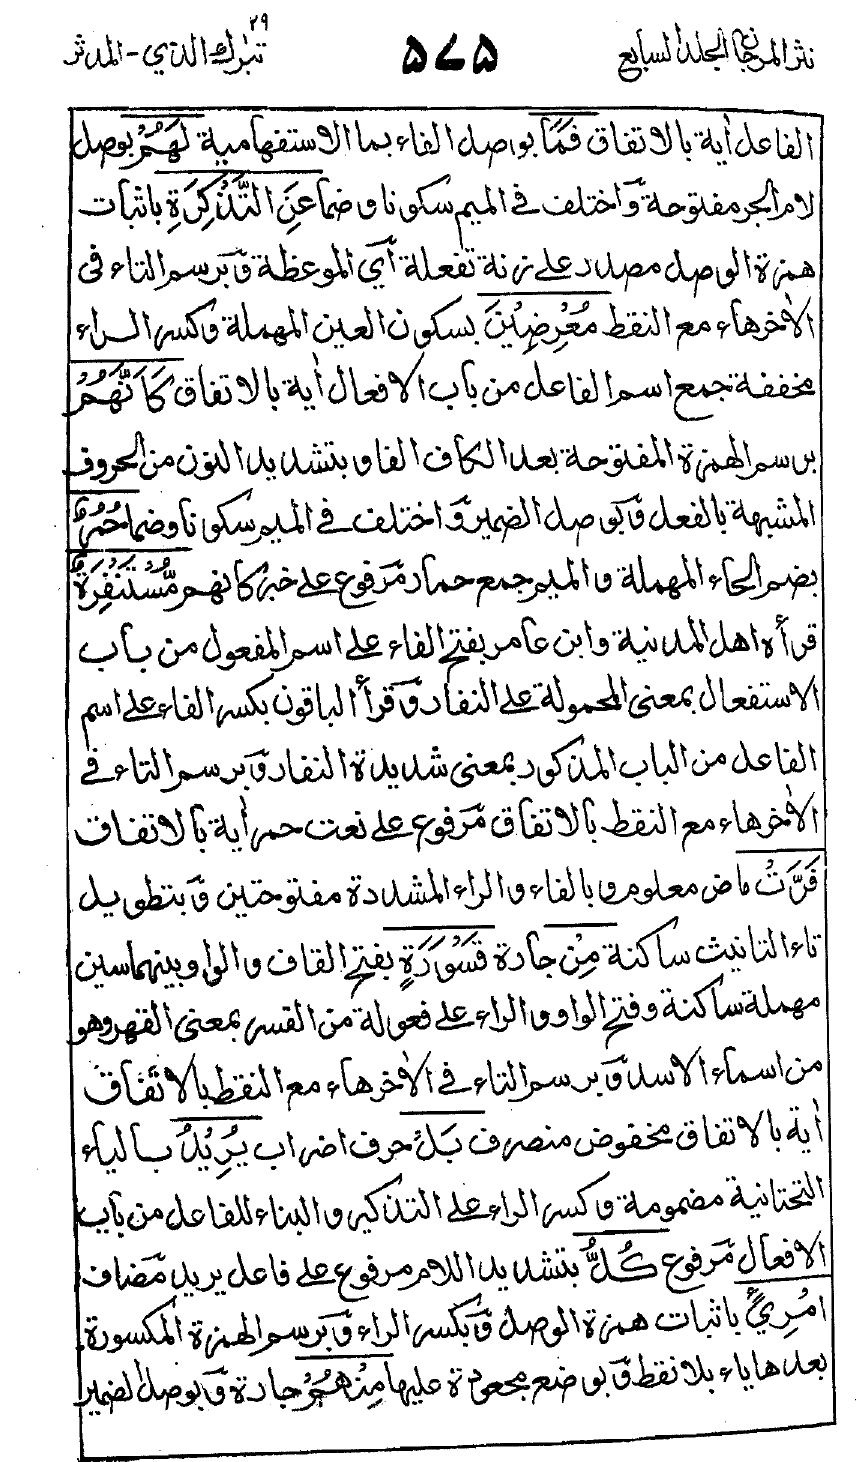 نثر المرجان الجلد السابع
٥٧٥
٢٩
تبرك الذي - المدثر
الفاعل أية بالاتفاق فَمَا بوصل الفاء بما الاستفهامية لَهُمْ بوصل
لام الجر مفتوحة وَاختلف في الميم سكونا وضما عَنِ التَّذْكِرَةِ باثبات
همزة الوصل مصدر على زنة تفعلة أي الموعظة وَبرسم التاء فى
الأخر هاء مع النقط مُعْرِضِيْنَ بسكون العين المهملة وكسر الراء
مخففة جمع اسم الفاعل من باب الافعال أية بالاتفاق كَأَنَّهُمْ
برسم الهمزة المفتوحة بعد الكاف الفا وبتشديد النون من الحروف
المشبهة بالفعل وَبوصل الضمير وَاختلف في الميم سكونا وضما حُمُرٌ
بضم الحاء المهملة والميم جمع حمار مَرفوع على خبر كانهم مُّسْتَنْفِرَةٌ
قرأه اهل المدنية وابن عامر بفتح الفاء على اسم المفعول من باب
الاستفعال بمعنى المحمولة على النفار وَقرأ الباقون بكسر الفاء على اسم
الفاعل من الباب المذكور بمعنى شديدة النفار وَبرسم التاء في
الأخر هاء مع النقط بالاتفاق مَرفوع على نعت حمر أية بالاتفاق
فَرَّتْ ماض معلوم وبالفاء والراء المشددة مفتوحتين وَبتطويل
تاء التانيث ساكنة مِنْ جارة قَسْوَرَةٍ بفتح القاف والواو بينهما سين
مهملة ساكنة وفتح الواو والراء على فعولة من القسر بمعنى القهر وهو
من اسماء الاسد وَبرسم التاء في الأخر هاء مع النقط بالاتفاق
أية بالاتفاق مخفوض منصرف بَلْ حرف اضراب يُرِيْدُ بالياء
التحتانية مضمومة وكسر الراء على التذكير والبناء للفاعل من باب
الافعال مَرفوع كُلُّ بتشديد اللام مرفوع على فاعل يريد مَضاف
امْرِئٍ باثبات همزة الوصل وَبكسر الراء وَبرسم الهمزة المكسورة
بعدها ياء بلا نقط وَبوضع مجعودة عليها مِنْهُمْ جارة وَبوصل الضمير